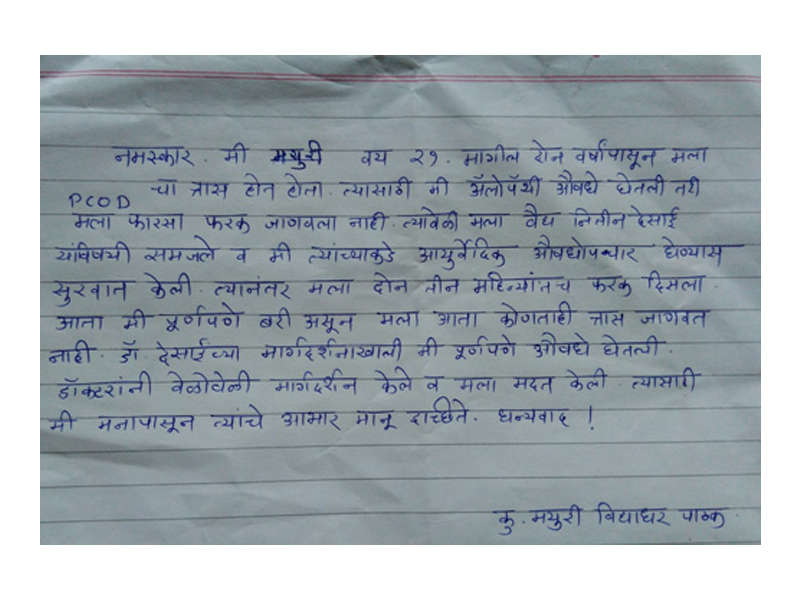 नमस्कार. मी मयुरी वय २१. मागील दोन वर्षांपासून मला
PCOD चा त्रास होत होता. त्यासाठी मी ॲलोपॅथी औषधे घेतली तरी
मला फारसा फरक जाणवला नाही. त्यावेळी मला वैद्य नितीन देसाई
यांविषयी समजले व मी त्यांच्याकडे आयुर्वेदिक औषधोपचार घेण्यास
सुरवात केली. त्यानंतर मला दोन तीन महिन्यांतच फरक दिसला.
आता मी पूर्णपणे बरी असून मला आता कोणताही त्रास जाणवत
नाही. डॉ. देसाईंच्या मार्गदर्शनाखाली मी पूर्णपणे औषधे घेतली.
डॉक्टरांनी वेळोवेळी मार्गदर्शन केले व मला मदत केली. त्यासाठी
मी मनापासून त्यांचे आभार मानू इच्छिते. धन्यवाद !
कु. मयुरी विद्याधर पाठक.